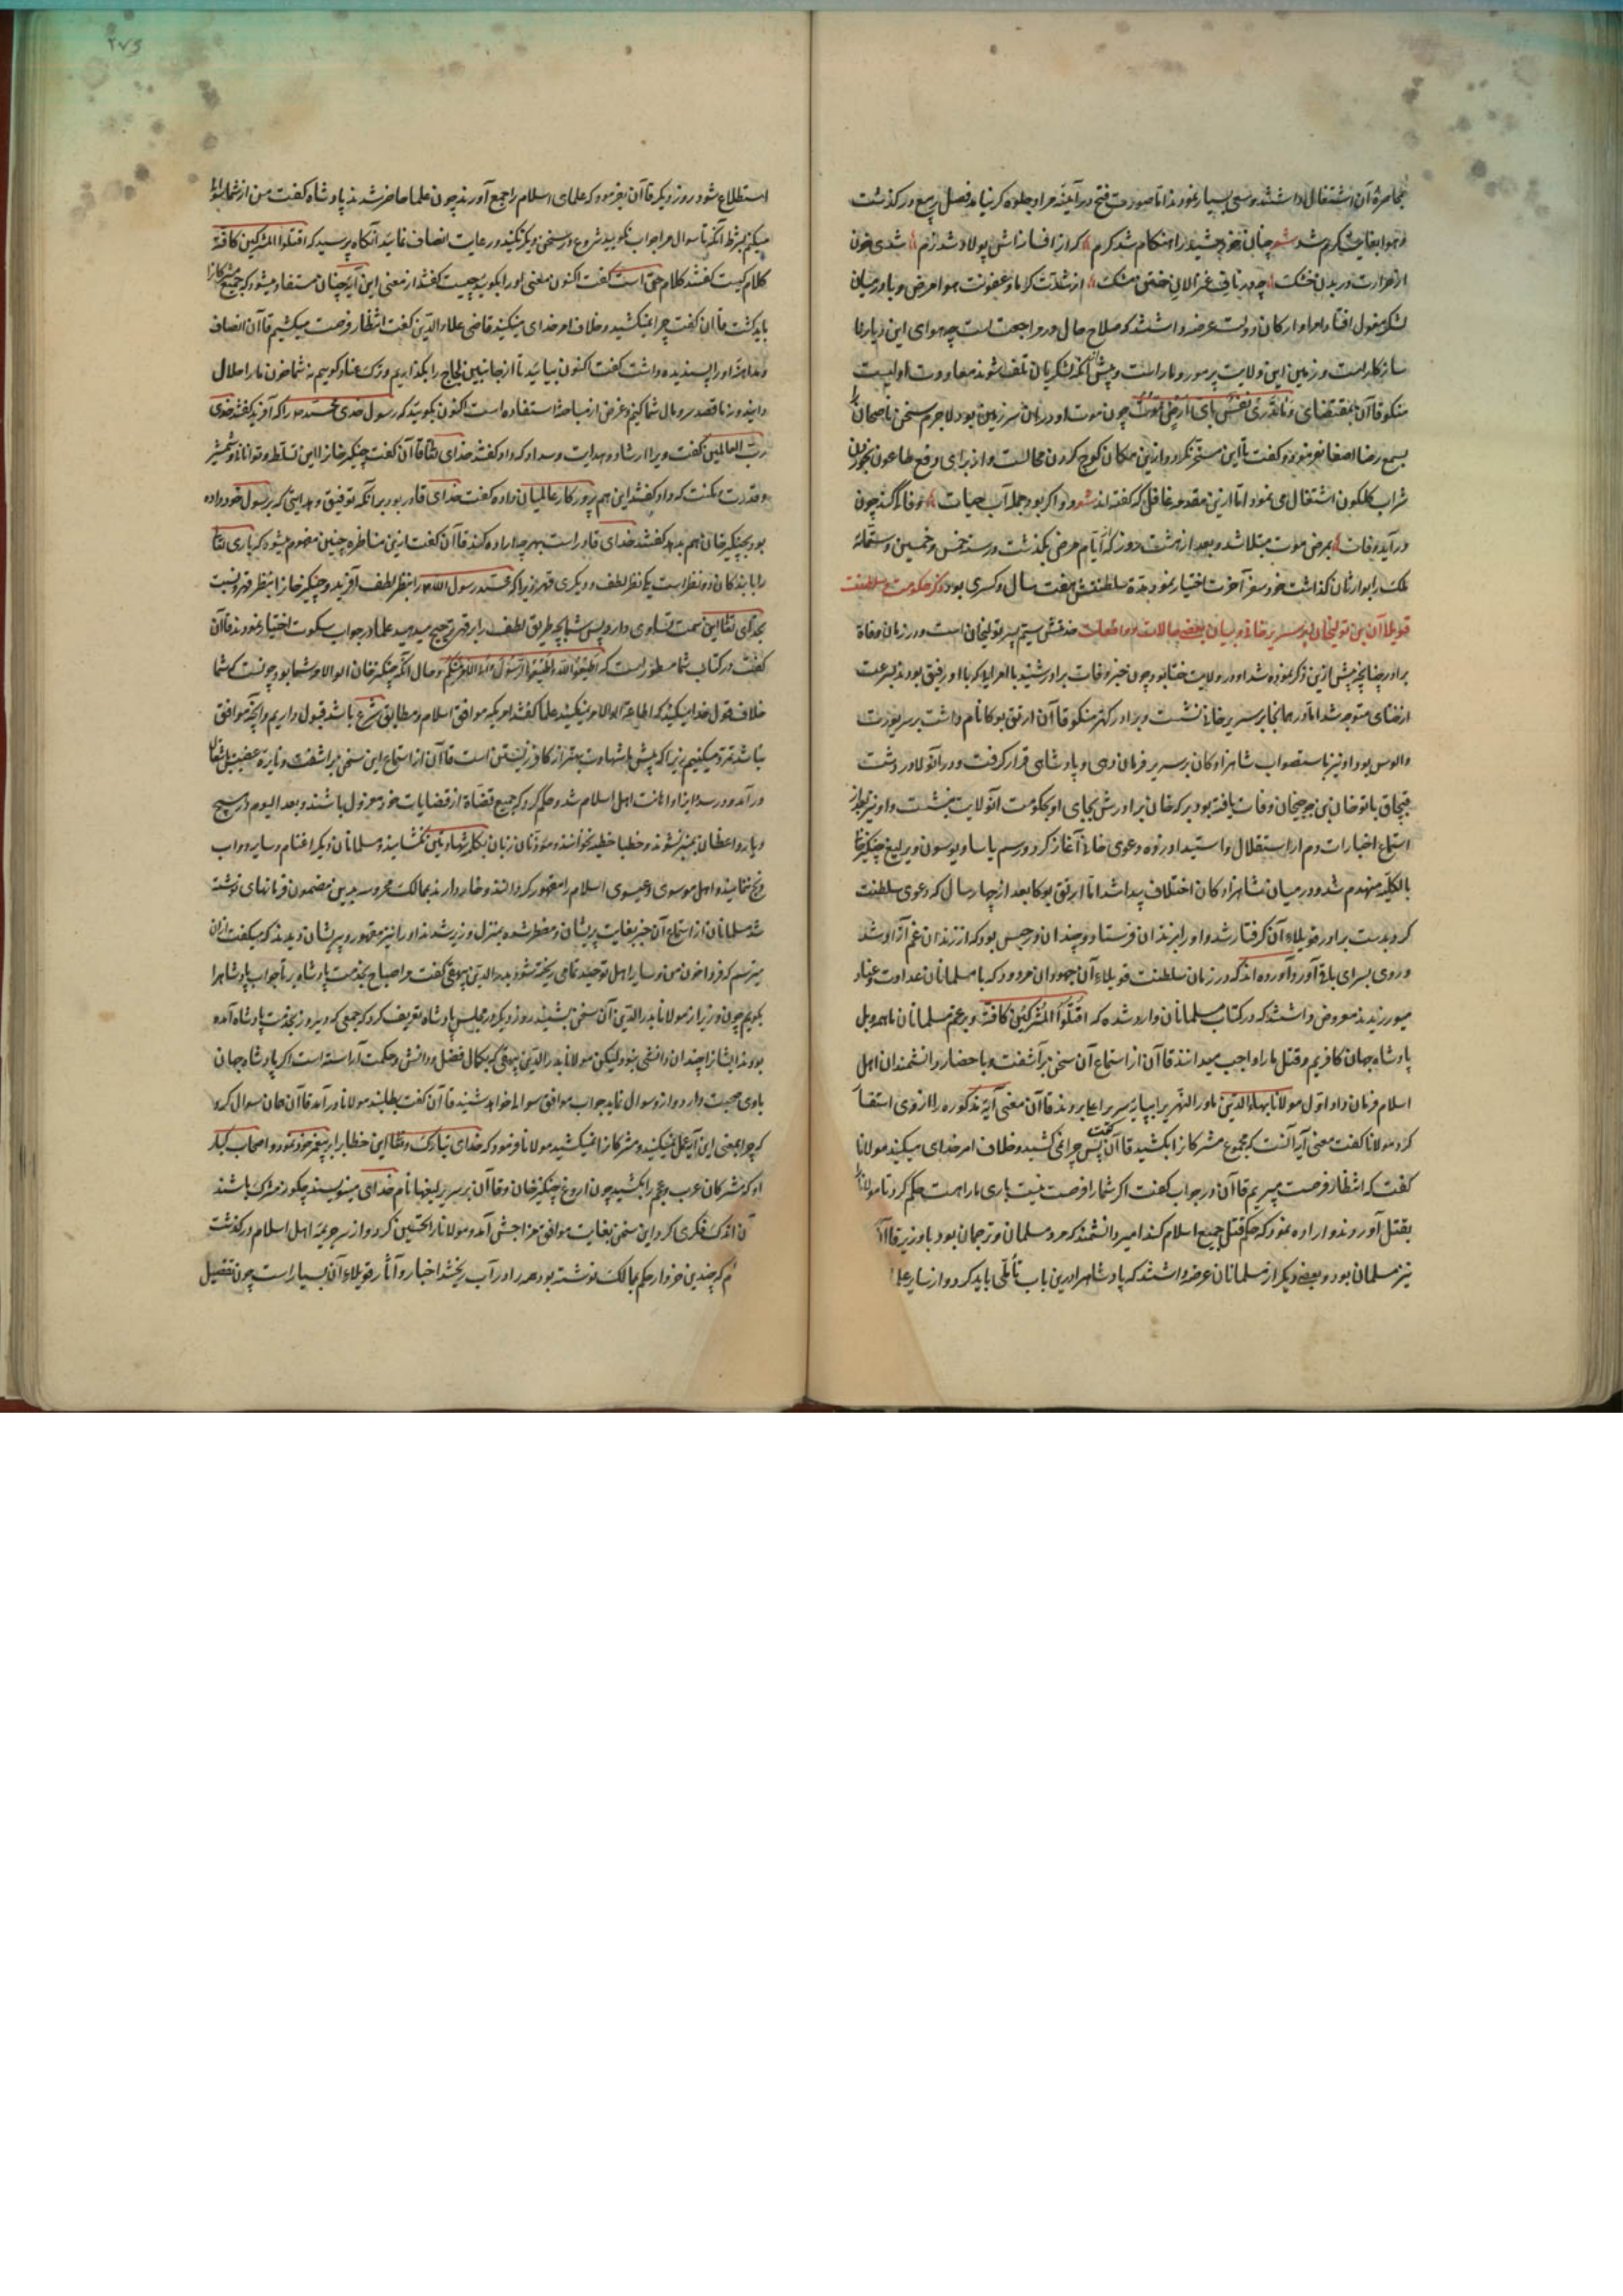 بمحاصرهٔ آن اشتغال داشتند و سعی بسیار نمودند اما صورت فتح در آینهٔ مراد جلوه کر نیامد فصل ربیع در کذشت
و هوا بغایت کرم شد شعر چنان خورشید را هنکام شد کرم که از افسانه‌اش پولاد شد نرم شدی خون
از حرارت در بدن خشک چو در ناف غزالان ختن مشک از شدت کرما و عفونت هوا مرض و با در میان
لشکر مغول افتاد امرا و ارکان دولت عرضه داشتند که صلاح حال در مراجعت است چه هوای این دیار نا
سازکار است و زمین این ولایت پر مور و مار است و پیش از آنکه لشکریان تلف شوند معاودت اولیست
منکو قاآن بمقتضای وما تدری نفس بای ارض تموت چون موت او در ان سرزمین بود لاجرم سخن ناصحان را
بسمع رضا اصغا نفرمود و کفت تا این مسخر نکردد ازین مکان کوچ کردن محالست و از برای دفع طاعون بخوردن
شراب کلکون اشتغال می نمود اما ازین مقدمه غافل که کفته اند شعر و اکر بود جمله آب حیات وفا کند چون
در آید وفات بمرض موت مبتلا شد و بعد از هشت روز که ایام مرض بکذشت در سنه خمس و خمسین و ستمائه
ملک را بوارثان کذاشت خود سفر آخرت اختیار نمود مدة سلطنتش هفت سال و کسری بود ذکر حکومت و سلطنت
قوبلا آن بن تولیخان بر سریر خانی و بیان بعضی حالات و واقعات صدقش سیم پسر تولیخان است و در زمان وفاة
برادر چنانچه پیش ازین ذکر نموده شد او در ولایت ختا بود چون خبر وفات برادر شنید با امرا که با او رفیق بودند بسرعت
از ختای متوجه شد اما در همانجا بر سریر خانی نشست و برادر کهتر منکو قاآن ارتق بوکا نام داشت بر سر یورت
و الوس بود او نیز باستصواب شاهزادکان بر سریر فرمان دهی و پادشاهی قرار کرفت و در آنولا در دشت
قبچاق باتو خان بن جوجیخان وفات یافته بود برکه خان برادرش بجای او بحکومت آنولایت بنشست و او نیز بعد از
استماع اخبارات دم از استقلال و استبداد زده دعوی خانی آغاز کرد و رسم یاسا و یوسون و یرلیغ چنکیز خان
بالکلیه منهدم شد و در میان شاهزادکان اختلاف پیدا شد اما ارتق بوکا بعد از چهار سال که دعوی سلطنت
کرد بدست برادر قوبلاء آن کرفتار شد و او را بزندان فرستاد و چندان در حبس بود که از زندان غم آزاد شد
و روی بسرای باقی آورد و آورده اند که در زمان سلطنت قوبلاء آن جهودان مردود که با مسلمانان عداوت و عناد
میورزیدند معروض داشتند که در کتاب مسلمانان وارد شده که اقتلوا المشرکین کافة و بزعم مسلمانان ما همه و بل
پادشاه جهان کافریم و قتل ما را واجب میدانند قاآن از استماع آن سخن بر آشفت و باحضار دانشمندان اهل
اسلام فرمان داد اول مولانا بهاء الدین ماوراء النهر را بپایهٔ سریر اعلی بردند قاآن معنی آیة مذکوره را از وی استفسار
کرد مولانا کفت معنی آیه آنست که مجموع مشرکانرا بکشید قاآن کفت پس چرا نمی کشید و خلاف امر خدای میکنید مولانا
کفت که انتظار فرصت میبریم قاآن در جواب کفت اکر شما را فرصت نیست باری ما را هست حکم کرد تا مولانا را
بقتل آوردند و اراده نمود که حکم قتل جمیع اسلام کند امیر دانشمند که مرد مسلمان و ترجمان بود با وزیر قاآن
نیز مسلمان بود و بعضی دیکر از مسلمانان عرضه داشتند که پادشاه را درین باب تأملی باید کرد و از سایر علما
استطلاع شود روز دیکر قاآن بفرمود که علمای اسلام را جمع آورند چون علما حاضر شدند پادشاه کفت من از شما سوالی
میکنم بشرط آنکه تا سوال مرا جواب نکویید شروع در سخن دیکر نکنید و رعایت انصاف نمائید آنکاه پرسید که اقتلوا المشرکین کافة
کلام کیست کفتند کلام حق است کفت اکنون معنی او را بکویید چیست کفتند از معنی این آیه چنان مستفاد میشود که جمیع مشرکانرا
باید کشت قاآن کفت چرا نمیکشید و خلاف امر خدای میکنید قاضی علاء الدین کفت انتظار فرصت میکشیم قاآن انصاف
و نداهت او را پسندیده داشت کفت اکنون بیائید تا از جانبین لجاج را بکذاریم و ترک عناد کوییم نه شما خون ما را حلال
دانید و نه ما قصد سر و مال شما کنیم و غرض از مباحثه استفاده است اکنون بکویید که رسول خدی محمد مورا که آفرید کفتند خدی
رب العالمین کفت ویرا ارشاد و هدایت و سداد که داد کفتند خدای تعالی قاآن کفت چنکیز خانرا این تسلط و توانائی و شمشیر
و قدرت و مکنت که داد کفتند این هم پروردکار عالمیان داده کفت خدای قادر بود بر آنکه توفیق و هدایتی که برسول خود داده
بود بچنکیز خان هم بدهد کفتند خدای قادر است بهر چه اراده کند قاآن کفت ازین مناظره چنین مفهوم میشود که باری تعالی
را با بندکان دو نظر است یکی نظر لطف و دیکری قهر زیرا که محمد رسول الله را بنظر لطف آفریده و چنکیز خانرا بنظر قهر و نسبت
بخدای تعالی این سمت تساوی دارد پس شما بچه طریق لطف را بر قهر ترجیح میدهید علما در جواب سکوت اختیار نمودند قاآن
کفت در کتاب شما مسطور است که اطیعوا الله واطیعوا الرسول واولی الامر منکم و حال آنکه چنکیز خان اولوالامر شما بود چونست که شما
خلاف قول خدا میکنید که اطاعة اولوالامر نمیکنید علما کفتند امریکه موافق اسلام و مطابق شرع باشد قبول داریم و آنچه موافق
نباشد تمرد میکنیم زیرا که پیش ما شهادت بهتر از کافر زیستن است قاآن از استماع این سخن بر آشفت و نایره غضبش اشتعال
در آمد و در صدد ایذا و اهانت اهل اسلام شد و حکم کرد که جمیع قضاة از قضایات خود معزول باشند و بعد الیوم در هیچ
دیار واعظان بمنبر نشوند و خطبا خطبه نخوانند و مؤذنان زبان بکلمه شهادتین نکشایند و مسلمانان دیکر اغنام و سایر دواب
ذبح ننمایند و اهل موسوی و عیسوی اسلام را مقهور کردانند و خوار دارند بممالک محروسه بدین مضمون فرمانهای نوشته
شد مسلمانان از استماع آن خبر بغایت پریشان و مضطر شده بمنزل وزیر شدند او را نیز مقهور و پریشان دیدند که میکفت ازان
میترسم که فردا خون من و سایر اهل توحید تمامی ریخته شود بدر الدین بیهقی کفت مرا صباح بخدمت پادشاه بر تا جواب پادشاه را
بکویم چون وزیر از مولانا بدر الدین آن سخن بشنید روز دیکر در مجلس پادشاه تعریف کرد که جمعی که دیروز بخدمت پادشاه آمده
بودند ایشانرا چندان دانشی نبود لیکن مولانا بدر الدین بیهقی که بکمال فضل و دانش و حکمت آراسته است اکر پادشاه جهان
با وی صحبت دارد و ازو سوال نماید جواب موافق سوال خواهد شنید قاآن کفت بطلبند مولانا در آمد قاآن همان سوال کرد
که چرا بمعنی این آیه عمل نمیکنید و مشرکانرا نمیکشید مولانا فرمود که خدای تبارک و تعالی این خطاب را بر پیغمبر خود نمود و اصحاب کبار
او که مشرکان عرب و عجم را بکشید چون اروغ چنکیز خان و قاآن بر سر یرلیغها نام خدای مینویسند چکونه مشرک باشند
آن اندک فکری کرد این سخن بغایت موافق مزاجش آمد و مولانا را تحسین کرد و از سر جریمه اهل اسلام در کذشت
م که چندین خروار حکم بممالک نوشته بود همه را در آب ریختند اخبار و آثار قوبلاء آن بسیار است چون تفصیل